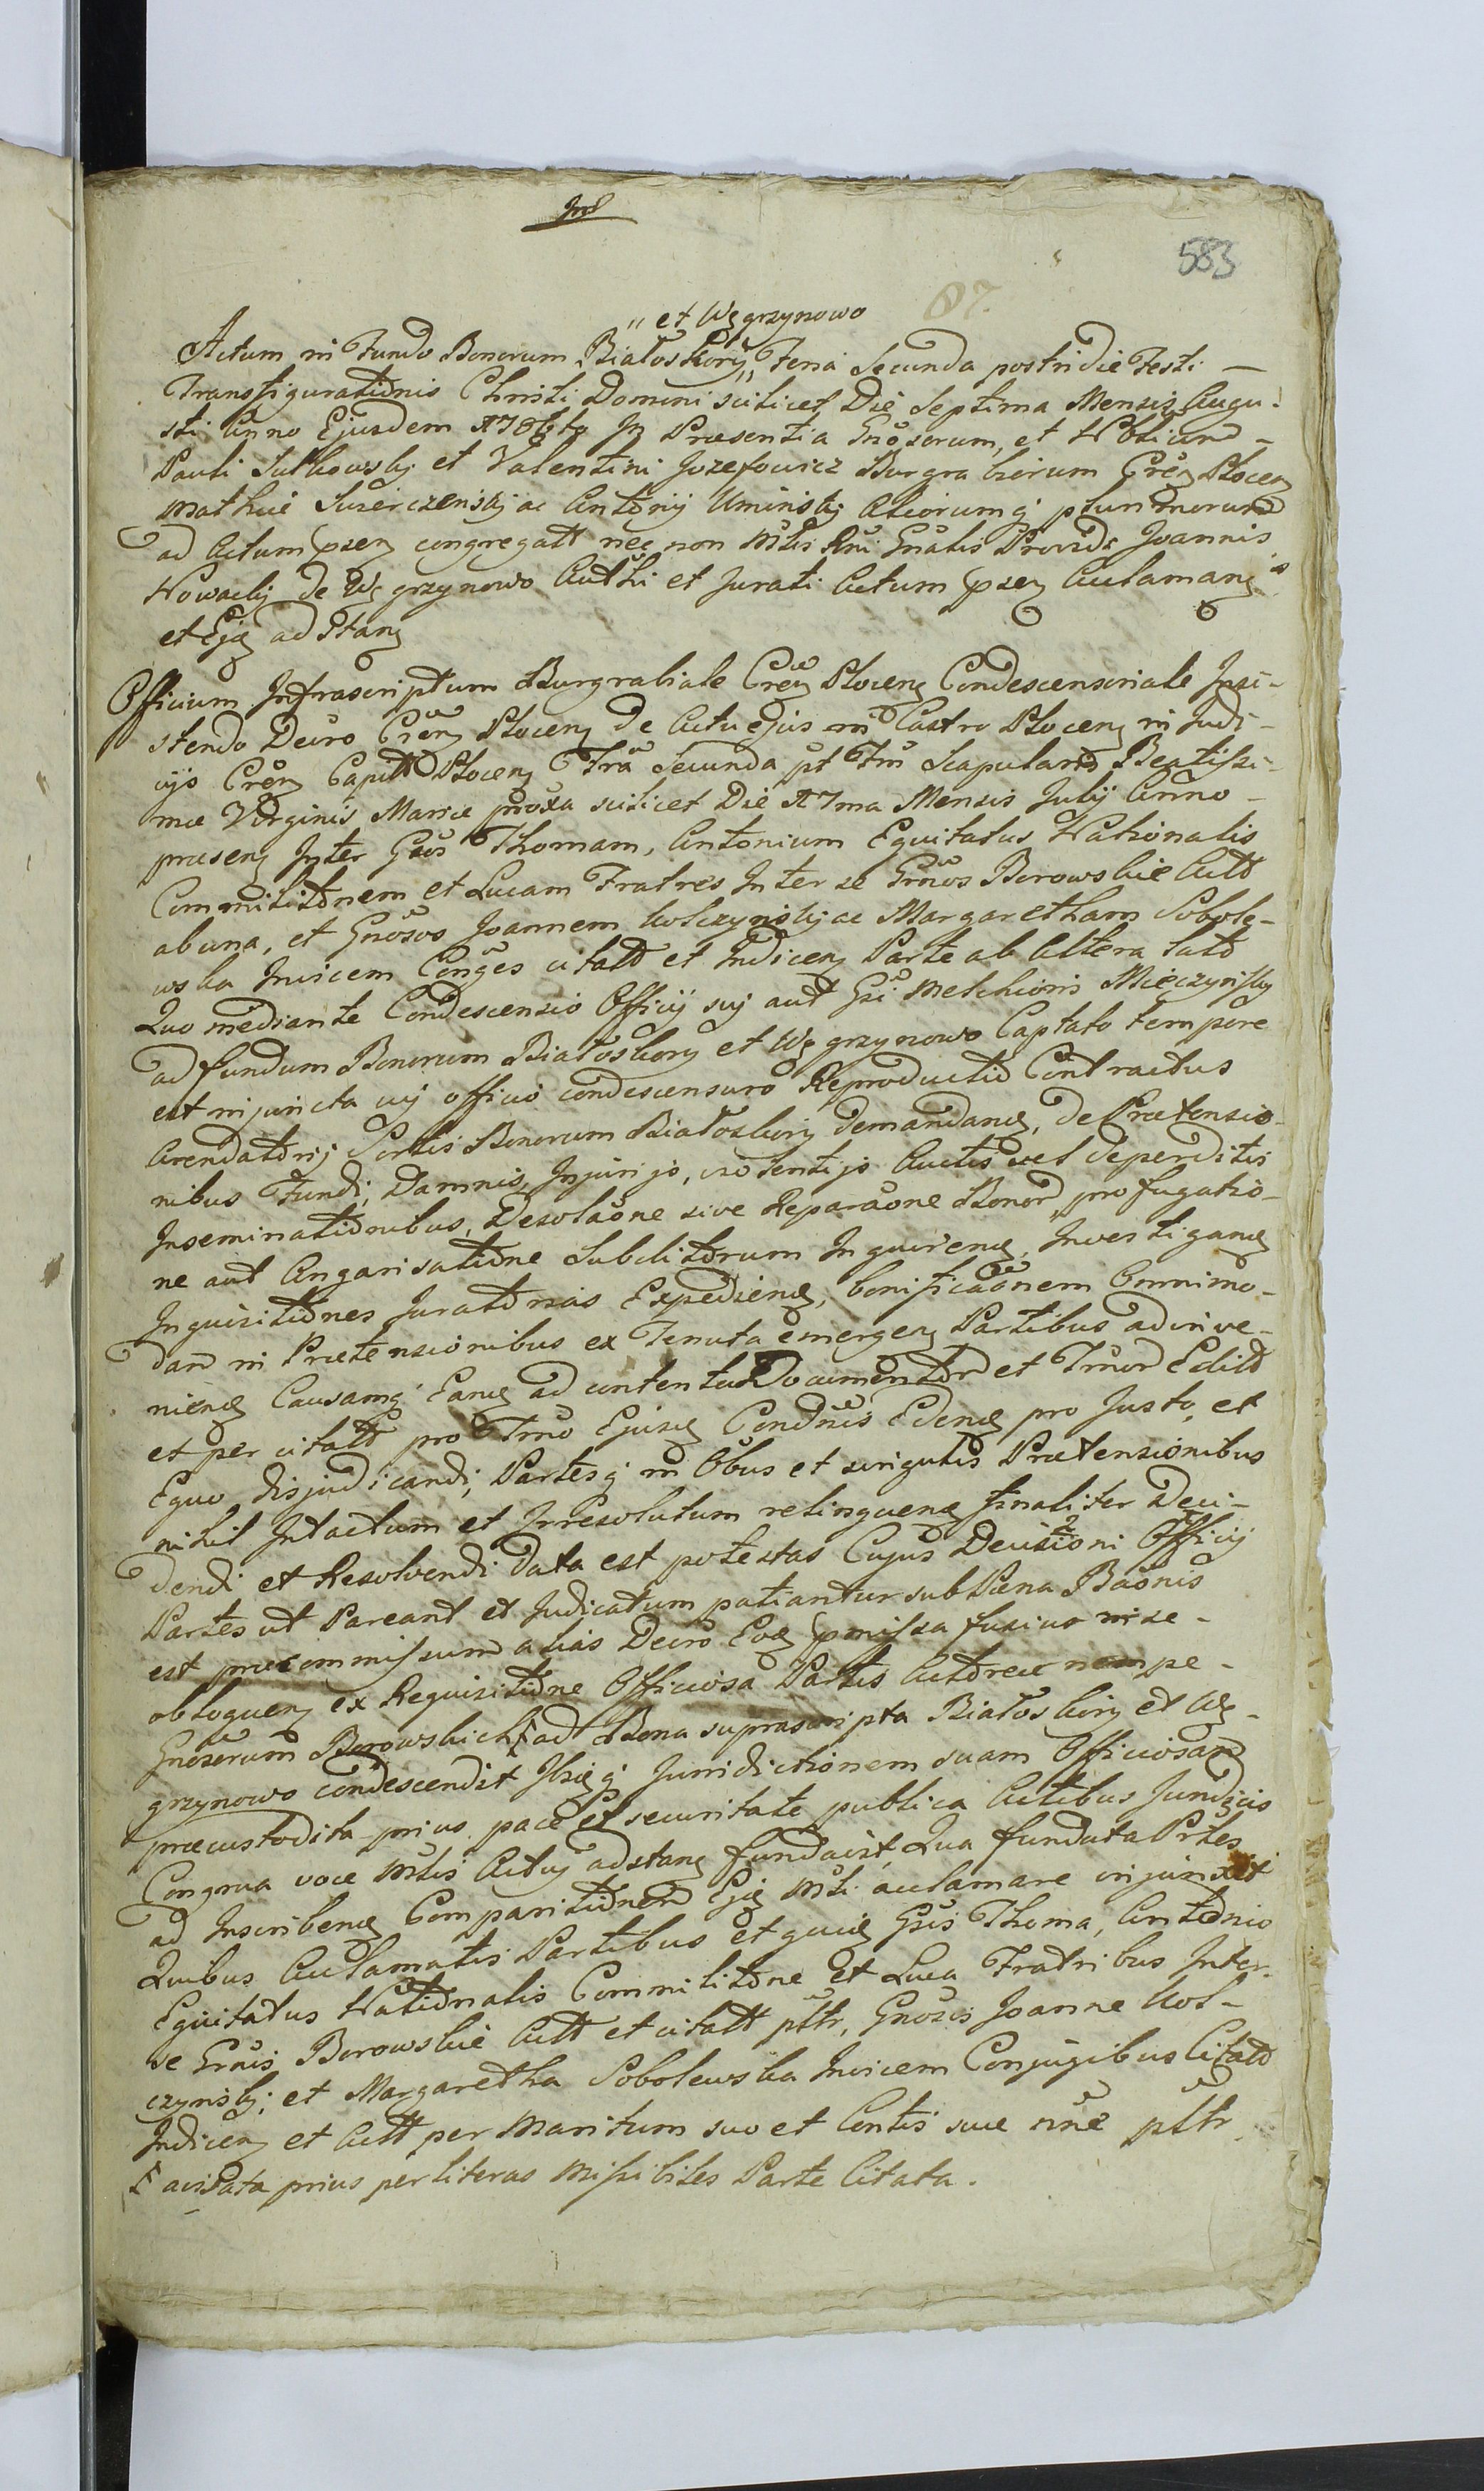 Ind
583
87.
„ et Węgrzynowo
Actum in Fundo Bonorum Białoskory „ Feria Secunda postridie Festi —
Transfigurationis Christi Domini scilicet Die Septima Mensis Augu-
sti Anno Ejusdem In Præsentia Gnosorum, et Nbilium —
Pauli Sulkowsky et Valentini Jozefowicz Burgrabiorum Cren Plocen
Mathiæ Suserczensky ac Antonij Uminsky Aliorumq plurimorum
ad Actum psen congregatt nec non Mtlis Rni Gnalis Providi Joannis
Nowacky de Węgrzynowo Authi et Jurati Actum psen Aclamang
et Ejq adstang
Officium Infrascriptum Burgrabiale Cren Plocen Condescensoriale Insi-
stendo Decro Cren Plocen de Actu ejus in Castro Plocen in Judi-
cijs Cren Capitt Plocen Fra Secunda pt Fm Scapularis Beatissi-
mæ Virginis Mariæ proxa scilicet Die 17ma Mensis Julij Anno —
præsen Inter Gsos Thomam, Antonium Equitatus Nationalis
Commilitonem et Lucam Fratres Inter se Grnos Borowskie Actt
ab una, et Gnosos Joannem Kolczynsky ac Margaretham Sobole-
wska Invicem Conges citatt et Indicen Parte ab Altera lato
Quo mediante Condescensio Officij sui aut Gsi Melchioris Mieczynsky
ad fundum Bonorum Białoskory et Węgrzynowo Captato tempore
est injuncta cuj officio condescensuro Reproductio Contractus
Arendatorij Sortis Bonorum Białoskory demandang, de Prætensio-
nibus Fundi, Damnis, Injurijs, violentijs Auctis vel deperditis
Inseminationibus, Desolaone sive Reparaone Bonor, profugatio-
ne aut Angarisatione Subditorum Inquireng, Investigang
Inquisitiones Juratorias Expedieng, bonificaonem Omnimo-
dam in Prætensionibus ex Tenuta emergen Partibus adinve-
nieng Causamq Eang ad contenta Documentor et Trnor Edito
et per citatt pro Trno Ejusq Condnis Edeng pro Justo, et
Equo disjudicandi, Partesq in Obus et singulis Prætensionibus
nihil Intactum et Irresolutum relinqueng finaliter Deci-
dendi et Resolvendi data est potestas Cujus Decisioni Officij
Partes ut Pareant et Judicatum patiantur sub Pæna Baonis
est præcommissum alias Decro Eoq pmissa fusius in se —
obloquen ex Requisitione Officiosa Partis Actoreæ nempe —
Gnosorum Borowskich ad Bona suprascripta Białoskory et Wę-
grzynowo condescendit Ibiq Jurisdictionem suam Officiosam
præcustodita prius pace et securitate publica Actibus Juridicis
Congrua voce Mtlis Actuj adstang fundavit, Qua fundata Prtes
ad Inscribeng Comparitionem Ejq Mtli aclamare injunxit
Quibus Aclamatis Partibus et quiq Gsis Thoma, Antonio
Equitatus Nationalis Commilitone et Luca Fratribus Inter-
se Grnis Borowskie Actt et citatt pltr, Gnosis Joanne Kol-
czynsky, et Margaretha Sobolewska Invicem Conjugibus Citatt
Indicen et Actt per Maritum suo et Contis suæ nne pltr
avisata prius per literas Missibiles Parte Citata.